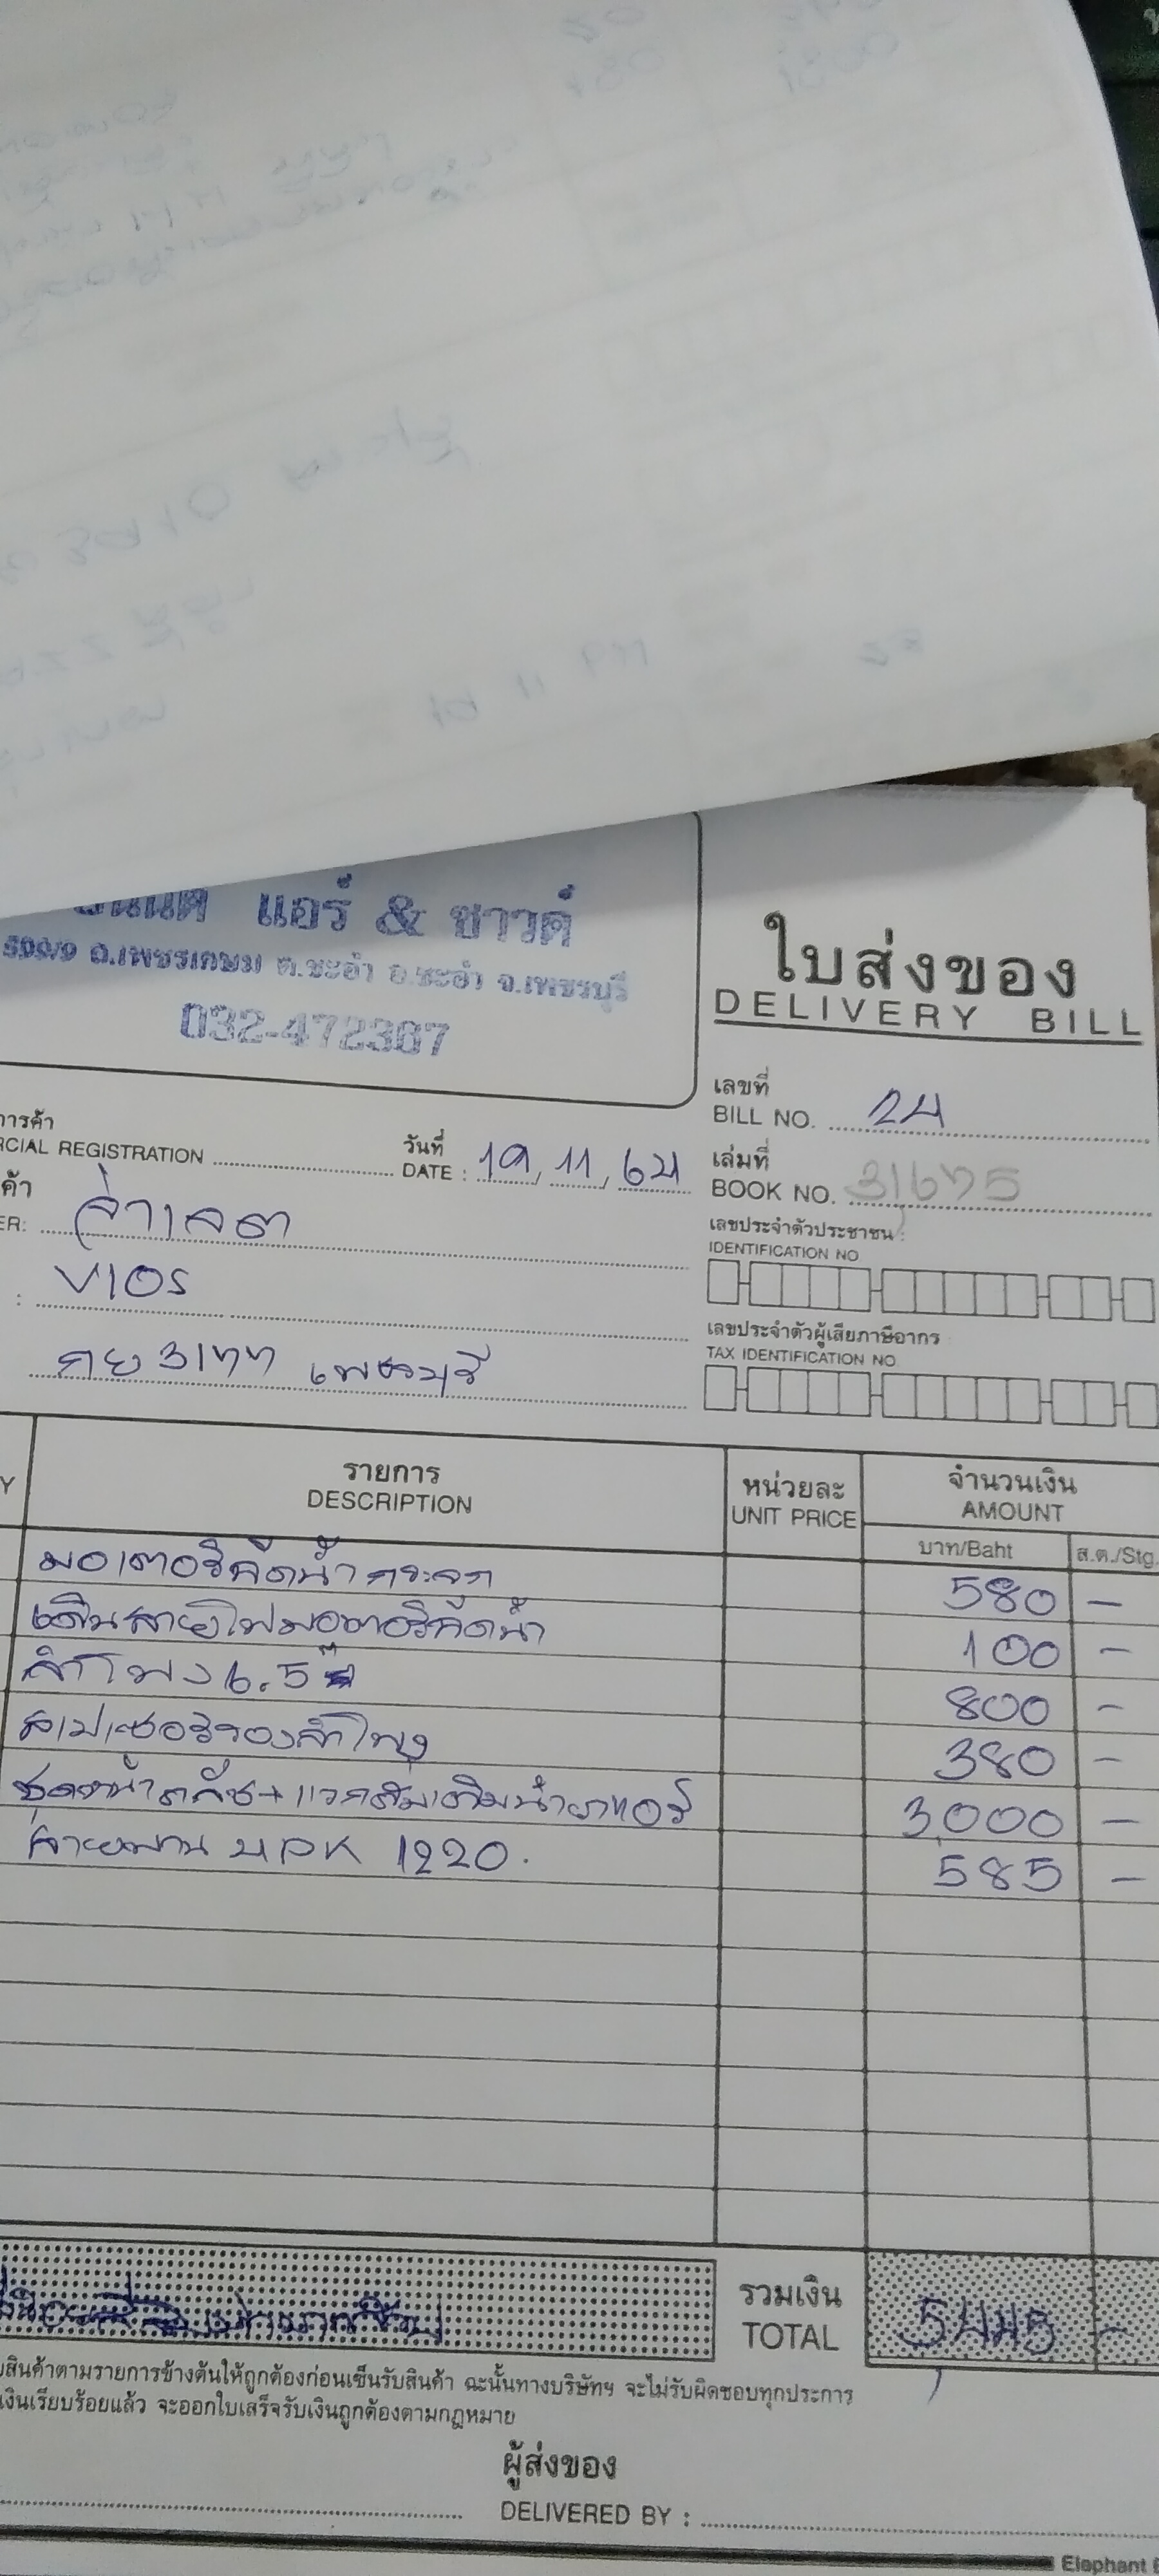 แอร์ & ซาวด์
ถ.เพชรเกษม ต.ชะอำ อ.ชะอำ จ.เพชรบุรี
032-472367
ใบส่งของ
DELIVERY BILL
เลขที่
BILL NO. 24
การค้า
RCIAL REGISTRATION
วันที่
DATE : 19, 11, 64
เล่มที่
BOOK NO. 31,675
ค้า
ER: จ่าเลต
เลขประจำตัวประชาชน :
IDENTIFICATION NO
: VIOS
เลขประจำตัวผู้เสียภาษีอากร
TAX IDENTIFICATION NO.
กย 3177 เพชรบุรี
Y
รายการ
DESCRIPTION
หน่วยละ
UNIT PRICE
จำนวนเงิน
AMOUNT
บาท/Baht ส.ต./Stg.
มอเตอร์ฉีดน้ำกระจก 580 —
เดินสายไฟมอเตอร์ฉีดน้ำ 100 —
ลำโพง 6.5" 800 —
สเปเซอร์รองลำโพง 380 —
ชุดหน้าคลัช+แวคคั่มเติมน้ำยาแอร์ 3,000 —
สายพาน 4PK 1220. 585 —
รวมเงิน
TOTAL 5,445 —
สินค้าตามรายการข้างต้นให้ถูกต้องก่อนเซ็นรับสินค้า ฉะนั้นทางบริษัทฯ จะไม่รับผิดชอบทุกประการ
เงินเรียบร้อยแล้ว จะออกใบเสร็จรับเงินถูกต้องตามกฎหมาย
ผู้ส่งของ
DELIVERED BY :
Elephant